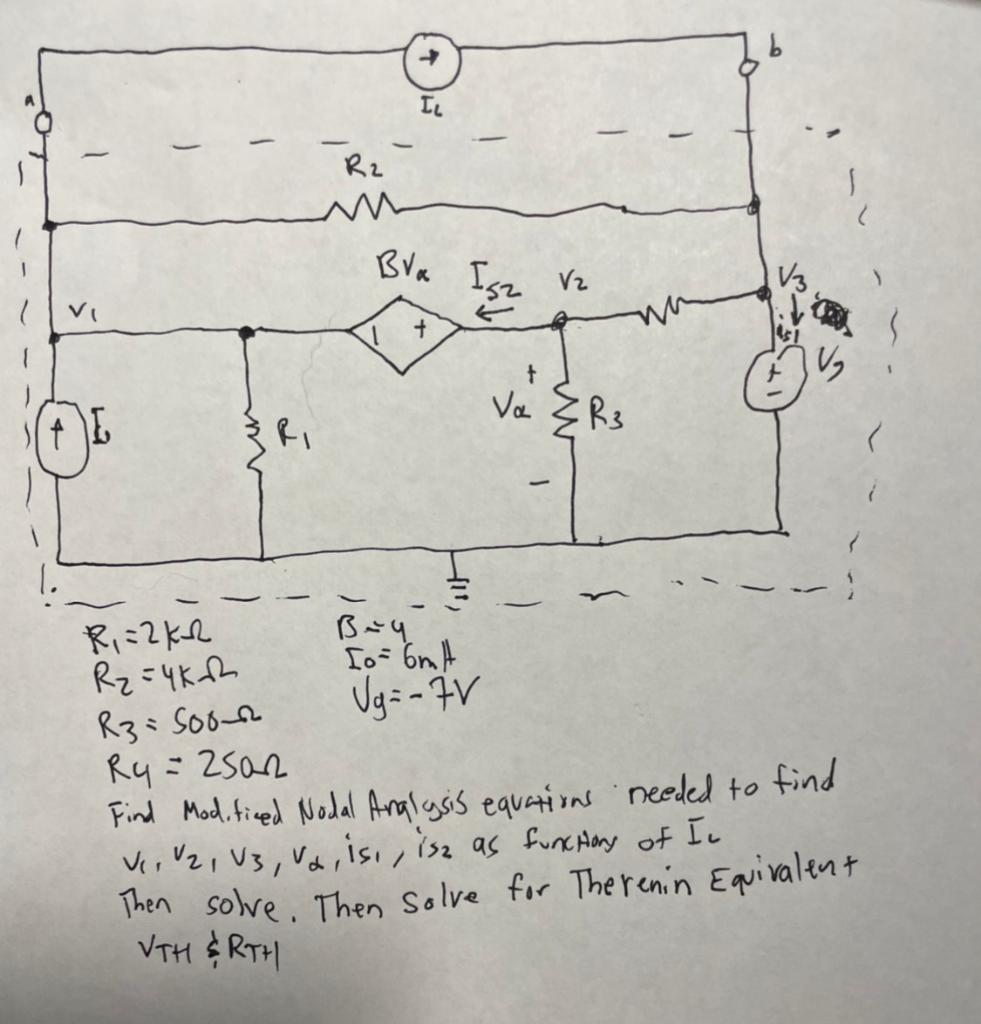 b
a
I_L
R₂
BVα
I_S2
V₂
V₃
V₁
i_s1
+
+
+
Vg
Vα
R₃
I₀
R₁
−
−
R₁=2kΩ
B=4
R₂=4kΩ
I₀=6mA
Vg=-7V
R₃=500Ω
R₄=250Ω
Find Modified Nodal Analysis equations needed to find
V₁, V₂, V₃, Vα, is₁, is₂ as functions of I_L
Then solve. Then Solve for Thevenin Equivalent
V_TH & R_TH